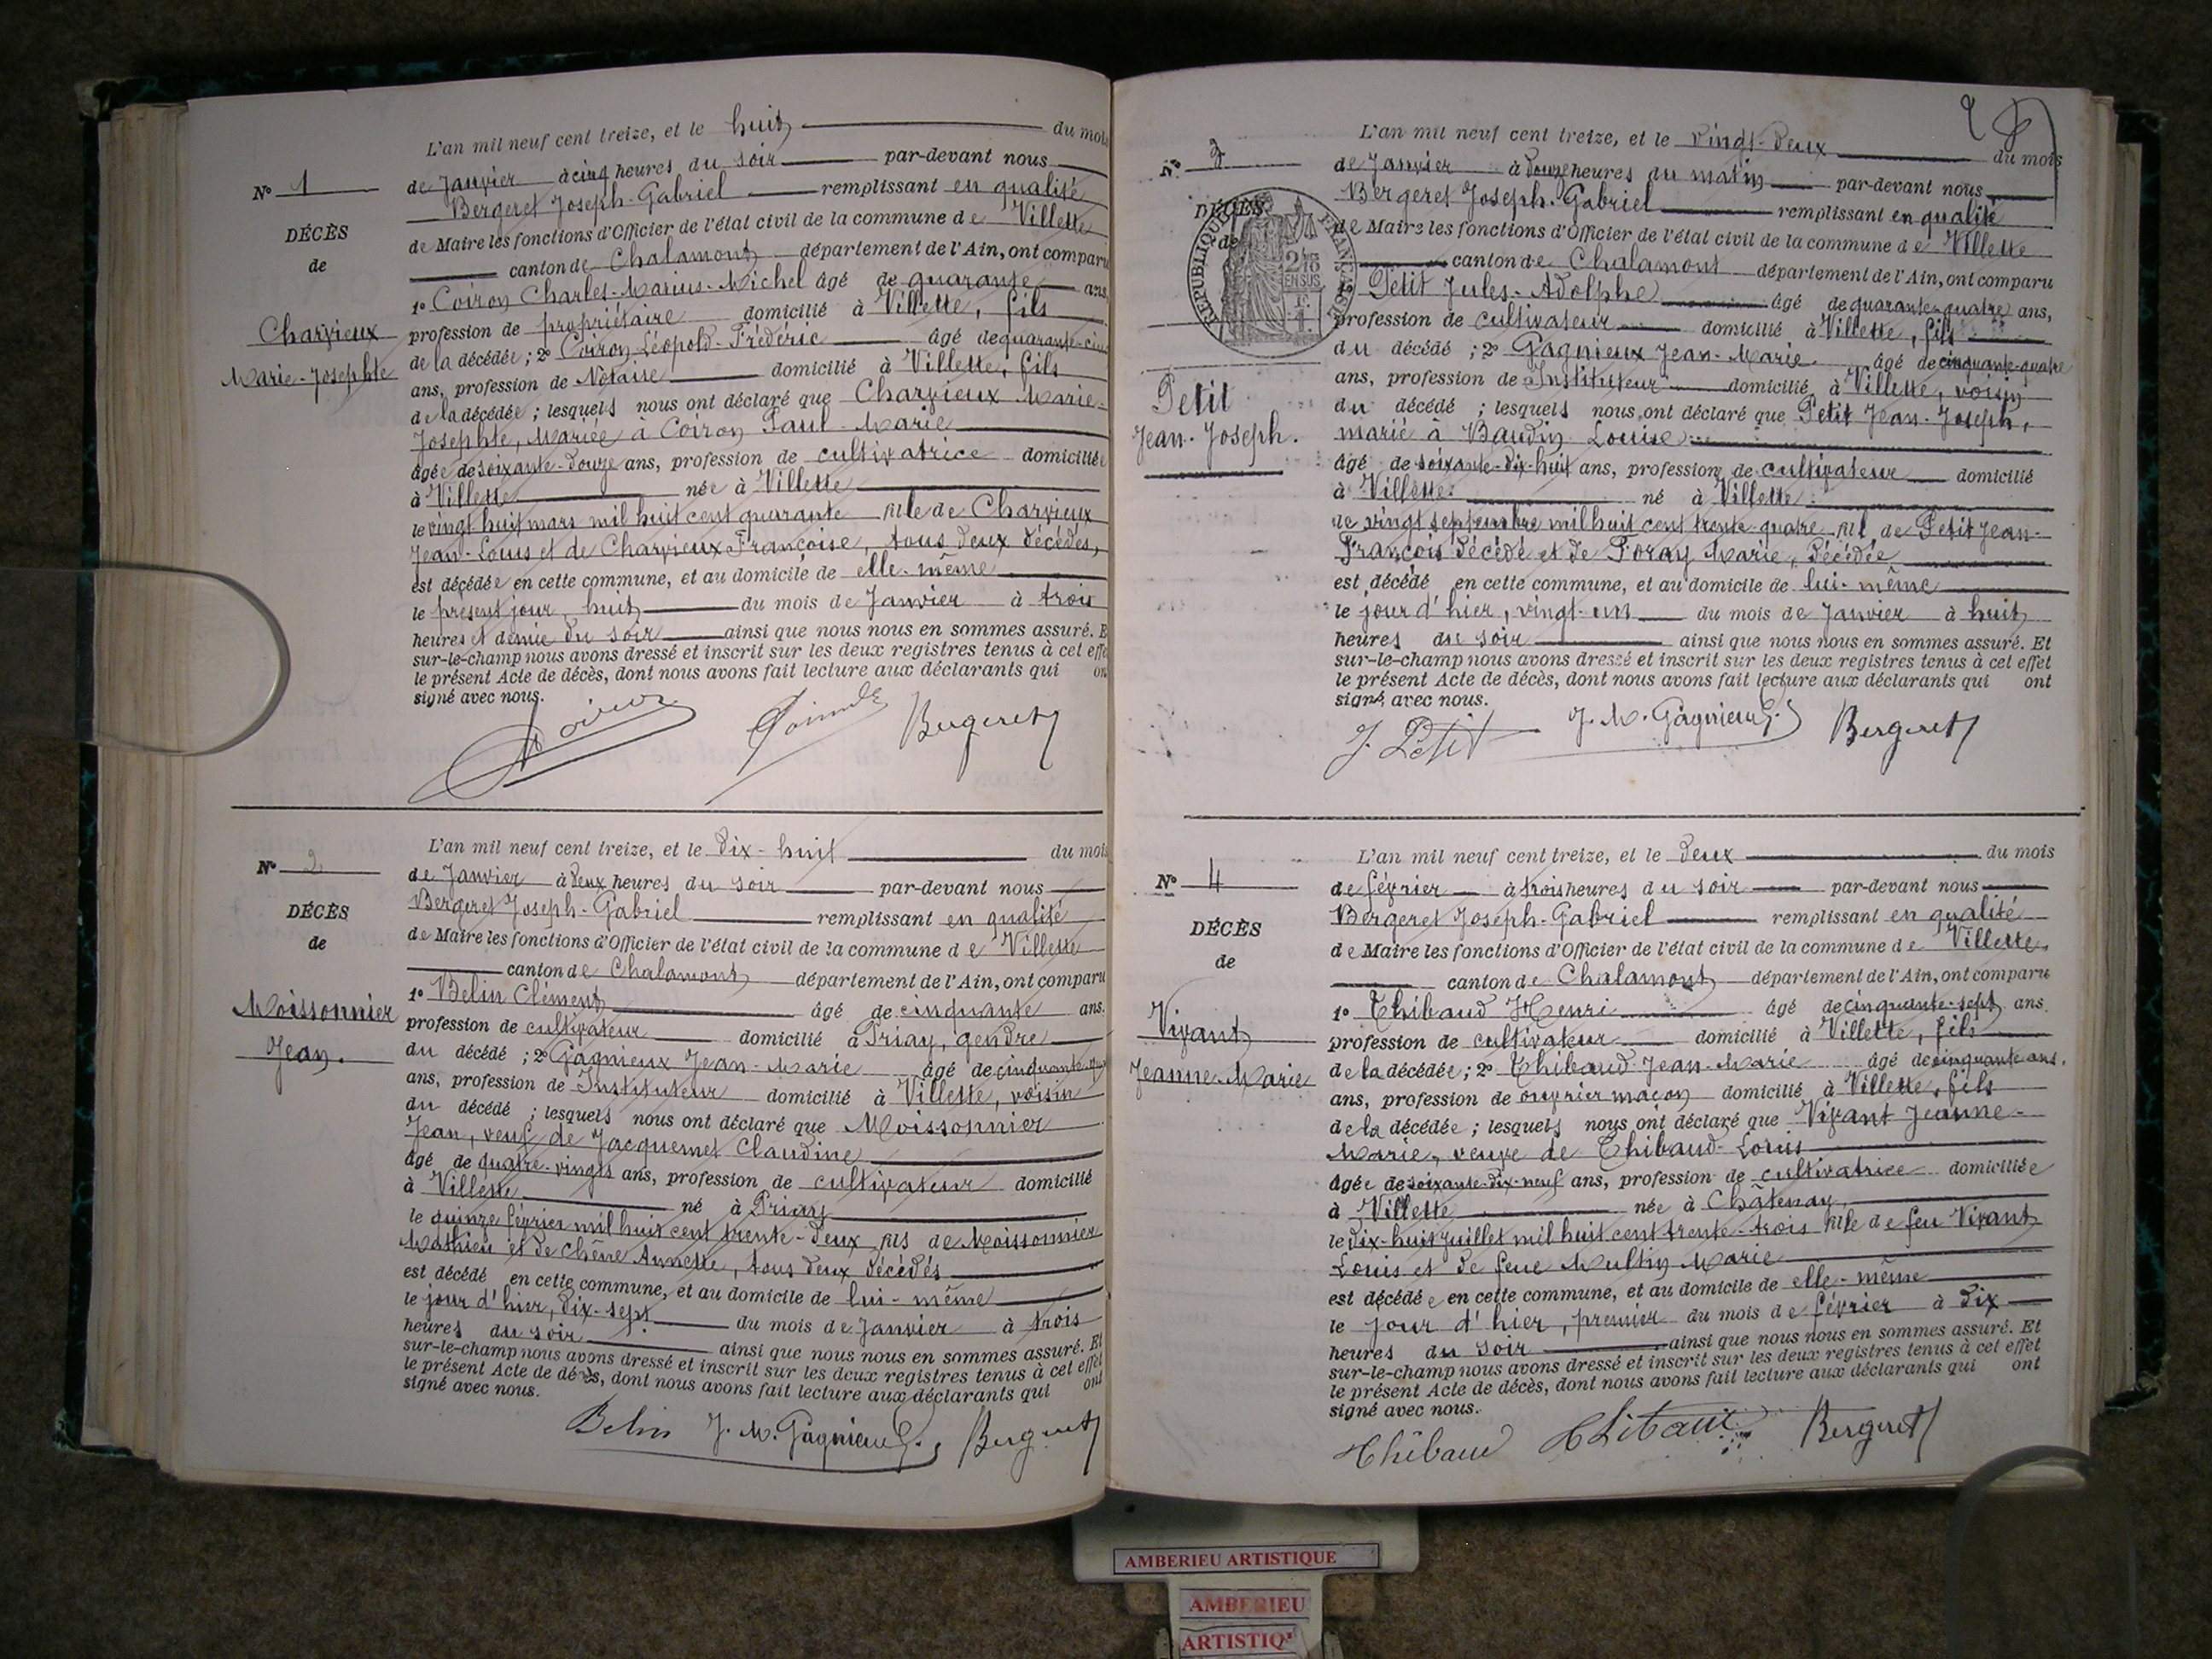 L'an mil neuf cent treize, et le huit du mois
N° 1
de Janvier à cinq heures du soir par-devant nous
Bergeret Joseph-Gabriel remplissant en qualité
DÉCÈS
de Maire les fonctions d'Officier de l'état civil de la commune de Villette
de
canton de Chalamont département de l'Ain, ont comparu
1° Coiron Charles-Marius-Michel âgé de quarante ans
Charvieux
profession de propriétaire domicilié à Villette, fils
Marie-Josephte
de la décédée ; 2° Coiron Léopold-Frédéric âgé de quarante-cinq
ans, profession de Notaire domicilié à Villette, fils
de la décédée ; lesquels nous ont déclaré que Charvieux Marie-
Josephte, Mariée à Coiron Paul-Marie
âgée de soixante-douze ans, profession de cultivatrice domiciliée
à Villette née à Villette
le vingt huit mars mil huit cent quarante fille de Charvieux
Jean-Louis et de Charvieux Françoise, tous deux décédés,
est décédée en cette commune, et au domicile de elle-même
le présent jour, huit du mois de Janvier à trois
heures et demie du soir ainsi que nous nous en sommes assuré. E
sur-le-champ nous avons dressé et inscrit sur les deux registres tenus à cet effe
le présent Acte de décès, dont nous avons fait lecture aux déclarants qui on
signé avec nous.
Bergeret
L'an mil neuf cent treize, et le dix-huit du mois
N° 2
de Janvier à deux heures du soir par-devant nous
Bergeret Joseph-Gabriel remplissant en qualité
DÉCÈS
de Maire les fonctions d'Officier de l'état civil de la commune de Villette
de
canton de Chalamont département de l'Ain, ont comparu
1° Belin Clément âgé de cinquante ans.
Moissonnier
profession de cultivateur domicilié à Priay, gendre
Jean.
du décédé ; 2° Gagnieux Jean-Marie âgé de cinquante-
ans, profession de Instituteur domicilié à Villette, voisin
du décédé ; lesquels nous ont déclaré que Moissonnier
Jean, veuf de Jacquemet Claudine
âgé de quatre-vingts ans, profession de cultivateur domicilié
à Villette né à Priay
le quinze février mil huit cent trente-deux fils de Moissonnier
Mathieu et de Chêne Annette, tous deux décédés
est décédé en cette commune, et au domicile de lui-même
le jour d'hier, dix-sept du mois de Janvier à trois
heures du soir ainsi que nous nous en sommes assuré. Et
sur-le-champ nous avons dressé et inscrit sur les deux registres tenus à cet effet
le présent Acte de décès, dont nous avons fait lecture aux déclarants qui ont
signé avec nous.
Belin J. M. Gagnieux. Bergeret
L'an mil neuf cent treize, et le vingt-deux du mois
N° 3
de Janvier à douze heures du matin par-devant nous
Bergeret Joseph-Gabriel remplissant en qualité
DÉCÈS
de Maire les fonctions d'Officier de l'état civil de la commune de Villette
de
canton de Chalamont département de l'Ain, ont comparu
1° Petit Jules-Adolphe âgé de quarante-quatre ans,
profession de cultivateur domicilié à Villette, fils
du décédé ; 2° Gagnieux Jean-Marie. âgé de cinquante-quatre
ans, profession de Instituteur domicilié à Villette, voisin
Petit
du décédé ; lesquels nous ont déclaré que Petit Jean-Joseph,
Jean-Joseph.
marié à Baudin Louise
âgé de soixante-dix-huit ans, profession de cultivateur domicilié
à Villette né à Villette
le vingt septembre mil huit cent trente-quatre fils de Petit Jean-
François décédé et de Foray Marie, décédée
est décédé en cette commune, et au domicile de lui-même
le jour d'hier, vingt-un du mois de Janvier à huit
heures du soir ainsi que nous nous en sommes assuré. Et
sur-le-champ nous avons dressé et inscrit sur les deux registres tenus à cet effet
le présent Acte de décès, dont nous avons fait lecture aux déclarants qui ont
signé avec nous.
J. Petit J. M. Gagnieux. Bergeret
L'an mil neuf cent treize, et le deux du mois
N° 4
de février à trois heures du soir par-devant nous
Bergeret Joseph-Gabriel remplissant en qualité
DÉCÈS
de Maire les fonctions d'Officier de l'état civil de la commune de Villette
de
canton de Chalamont département de l'Ain, ont comparu
1° Thibaud Henri âgé de cinquante-sept ans
Vivant
profession de cultivateur domicilié à Villette, fils
Jeanne-Marie
de la décédée ; 2° Thibaud Jean-Marie âgé de cinquante ans.
ans, profession de ouvrier maçon domicilié à Villette, fils
de la décédée ; lesquels nous ont déclaré que Vivant Jeanne-
Marie, veuve de Thibaud Louis
âgée de soixante-dix-neuf ans, profession de cultivatrice domiciliée
à Villette née à Châtenay,
le dix-huit juillet mil huit cent trente-trois fille de feu Vivant
Louis et de feue Multin Marie
est décédée en cette commune, et au domicile de elle-même
le jour d'hier, premier du mois de février à dix
heures du soir ainsi que nous nous en sommes assuré. Et
sur-le-champ nous avons dressé et inscrit sur les deux registres tenus à cet effet
le présent Acte de décès, dont nous avons fait lecture aux déclarants qui ont
signé avec nous.
Thibaud Thibaud Bergeret
AMBERIEU ARTISTIQUE
AMBERIEU
ARTISTIQ